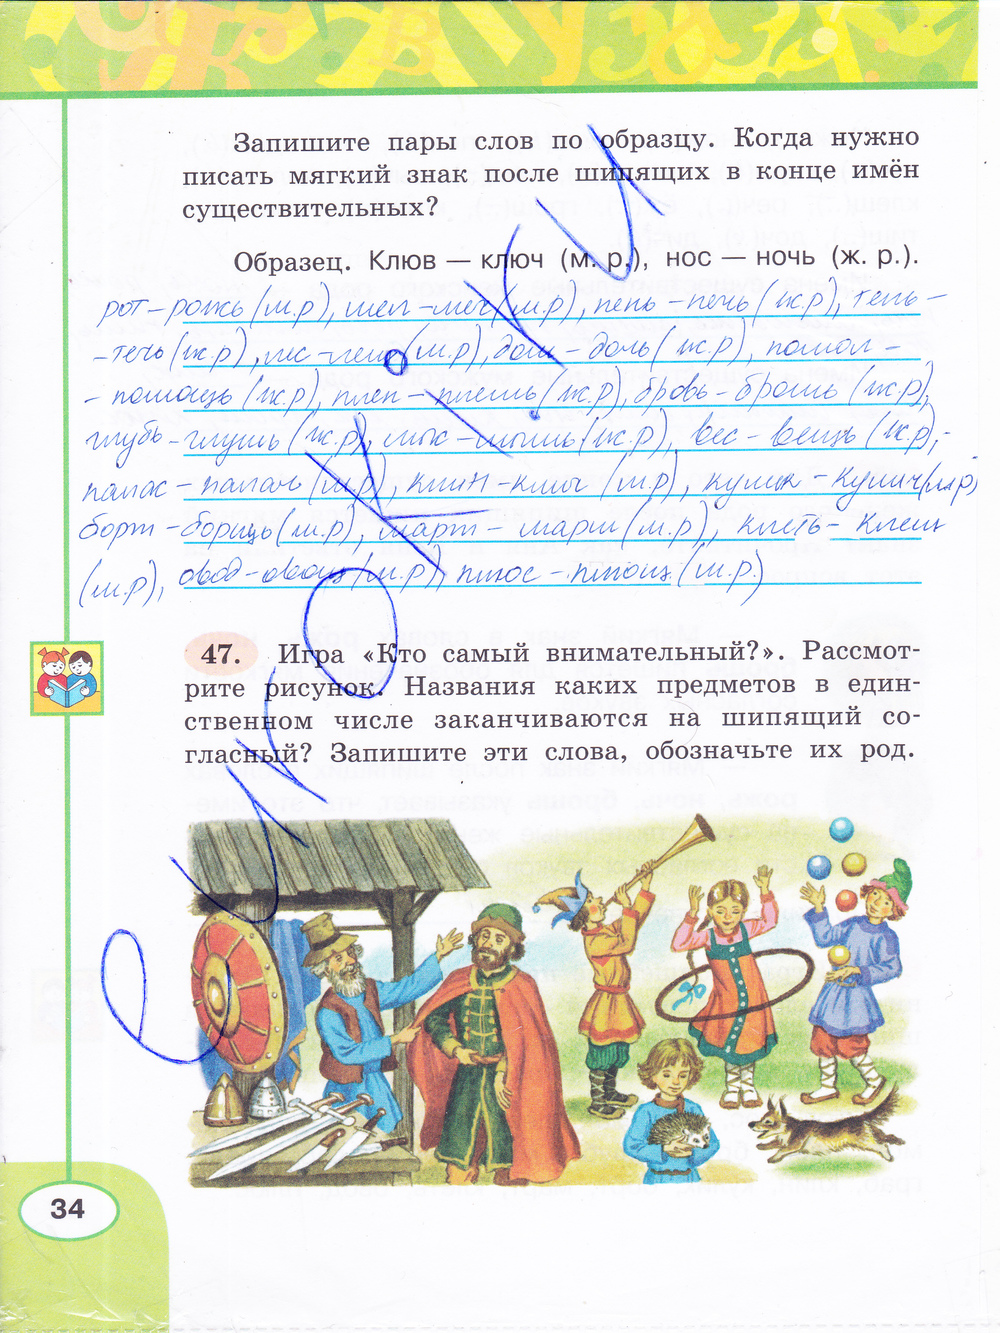 Запишите пары слов по образцу. Когда нужно
писать мягкий знак после шипящих в конце имён
существительных?
Образец. Клюв — ключ (м. р.), нос — ночь (ж. р.).
рот – рожь (м.р), мел – меч (м.р), пень – печь (ж.р), тень –
– течь (ж.р), лес – лещ (м.р), дом – дочь (ж.р), помол –
– помощь (ж.р), плен – плешь (ж.р), бровь – брошь (ж.р),
глубь – глушь (ж.р), мох – мышь (ж.р), вес – вещь (ж.р), -
палас – палач (м.р), клин – клич (м.р), кулик – кулич (м.р)
борт – борщь (м.р), март – марш (м.р), клеть – клещ
(м.р), овод – овощ (м.р), плюс – плющ (м.р.)
47. Игра «Кто самый внимательный?». Рассмот-
рите рисунок. Названия каких предметов в един-
ственном числе заканчиваются на шипящий со-
гласный? Запишите эти слова, обозначьте их род.
еуроки.ру
34